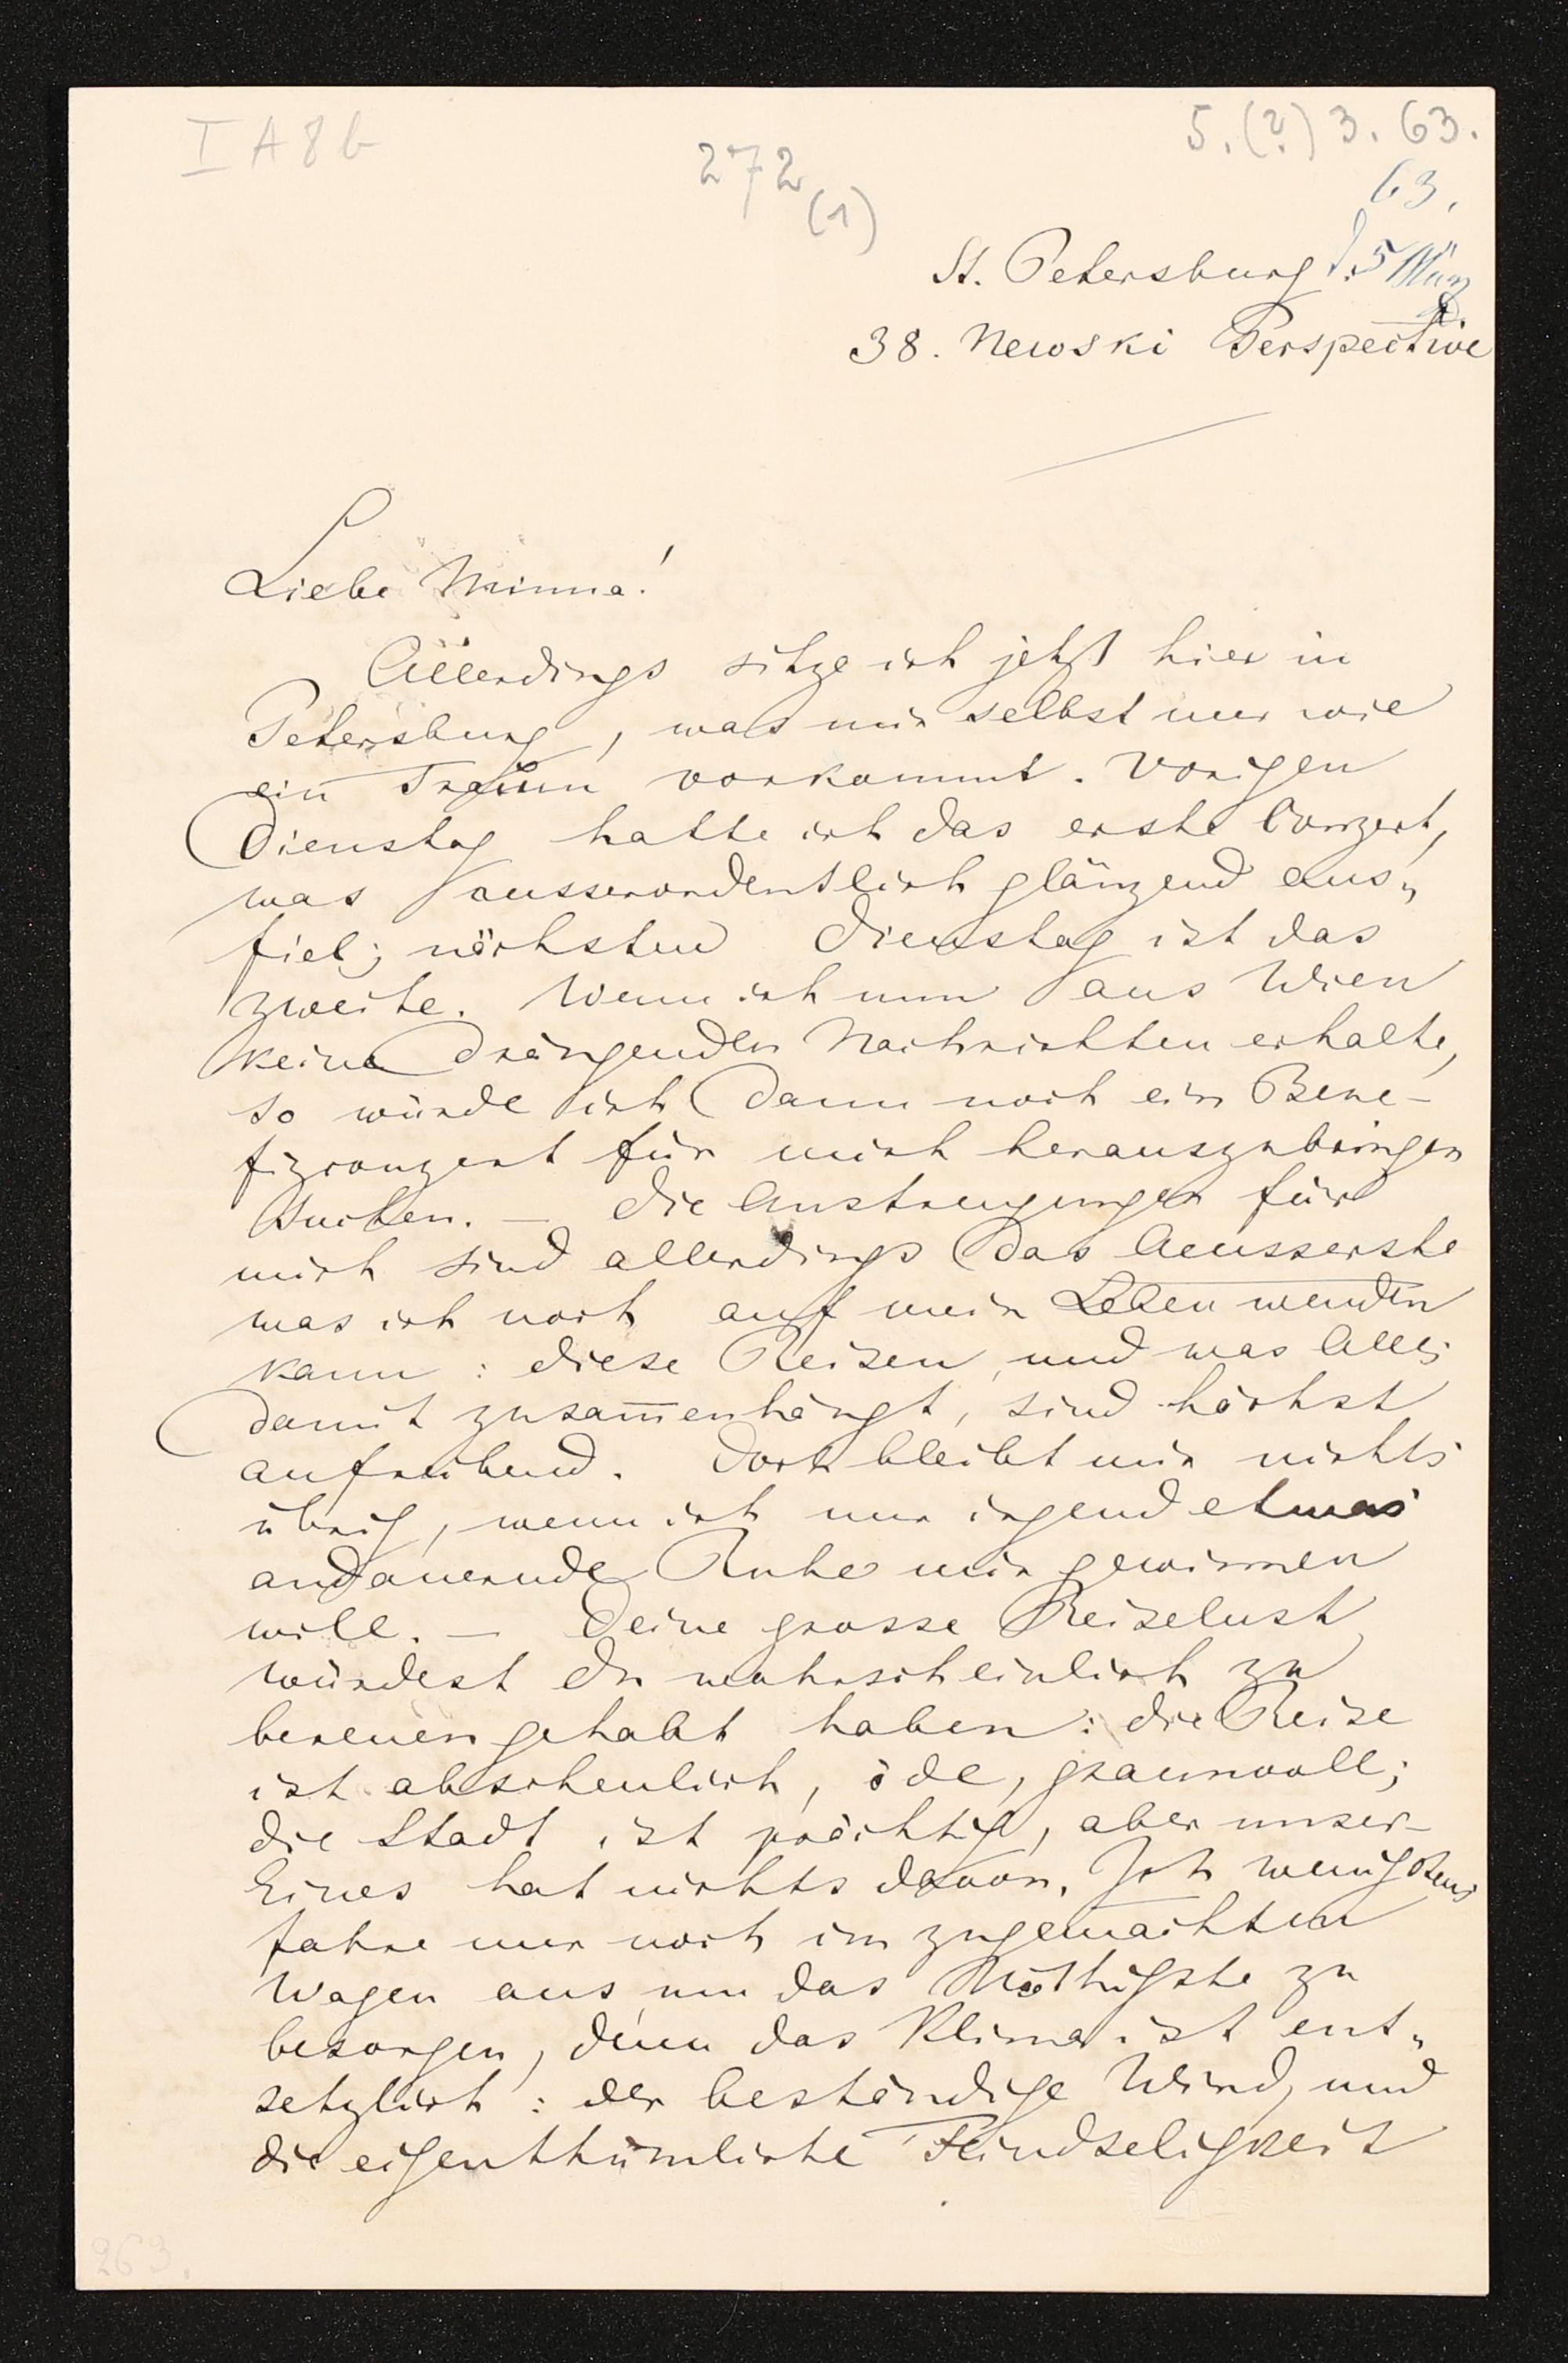 I A 8 b
272
(1)
5. (?) 3. 63.
63.
St. Petersburg d. 5 März
38. Newski Perspective
Liebe Minna!
Allerdings sitze ich jetzt hier in
Petersburg, was mir selbst nur wie
ein Traum vorkommt. Vorigen
Dienstag hatte ich das erste Conzert,
was ausserordentlich glänzend aus„
fiel; nächsten Dienstag ist das
zweite. Wenn ich nun aus Wien
keine drängenden Nachrichten erhalte,
so würde ich dann noch ein Bene-
fizconzert für mich herauszubringen
suchen. — Die Anstrengungen für
mich sind allerdings das Aeusserste
was ich noch auf mein Leben wenden
kann: diese Reisen, und was Alles
damit zusam̅enhängt, sind höchst
aufreibend. Doch bleibt mir nichts
übrig, wenn ich nur irgend etwas
andauernde Ruhe mir gewinnen
will. — Deine grosse Reiselust
würdest Du wahrscheinlich zu
bereuen gehabt haben: die Reise
ist abscheulich, öde, graunvoll;
die Stadt ist prächtig, aber unser-
Eines hat nichts davon. Ich wenigstens
fahre nur noch im zugemachten
Wagen aus um das Nöthigste zu
besorgen, denn das Klima ist ent„
setzlich: der beständige Wind, und
die eigenthümliche Feindseligkeit
263.